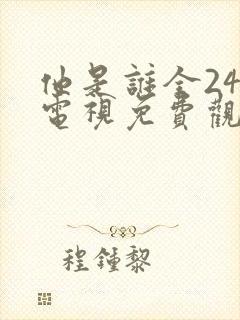 他是誰全24
電視免費觀
程鍾黎